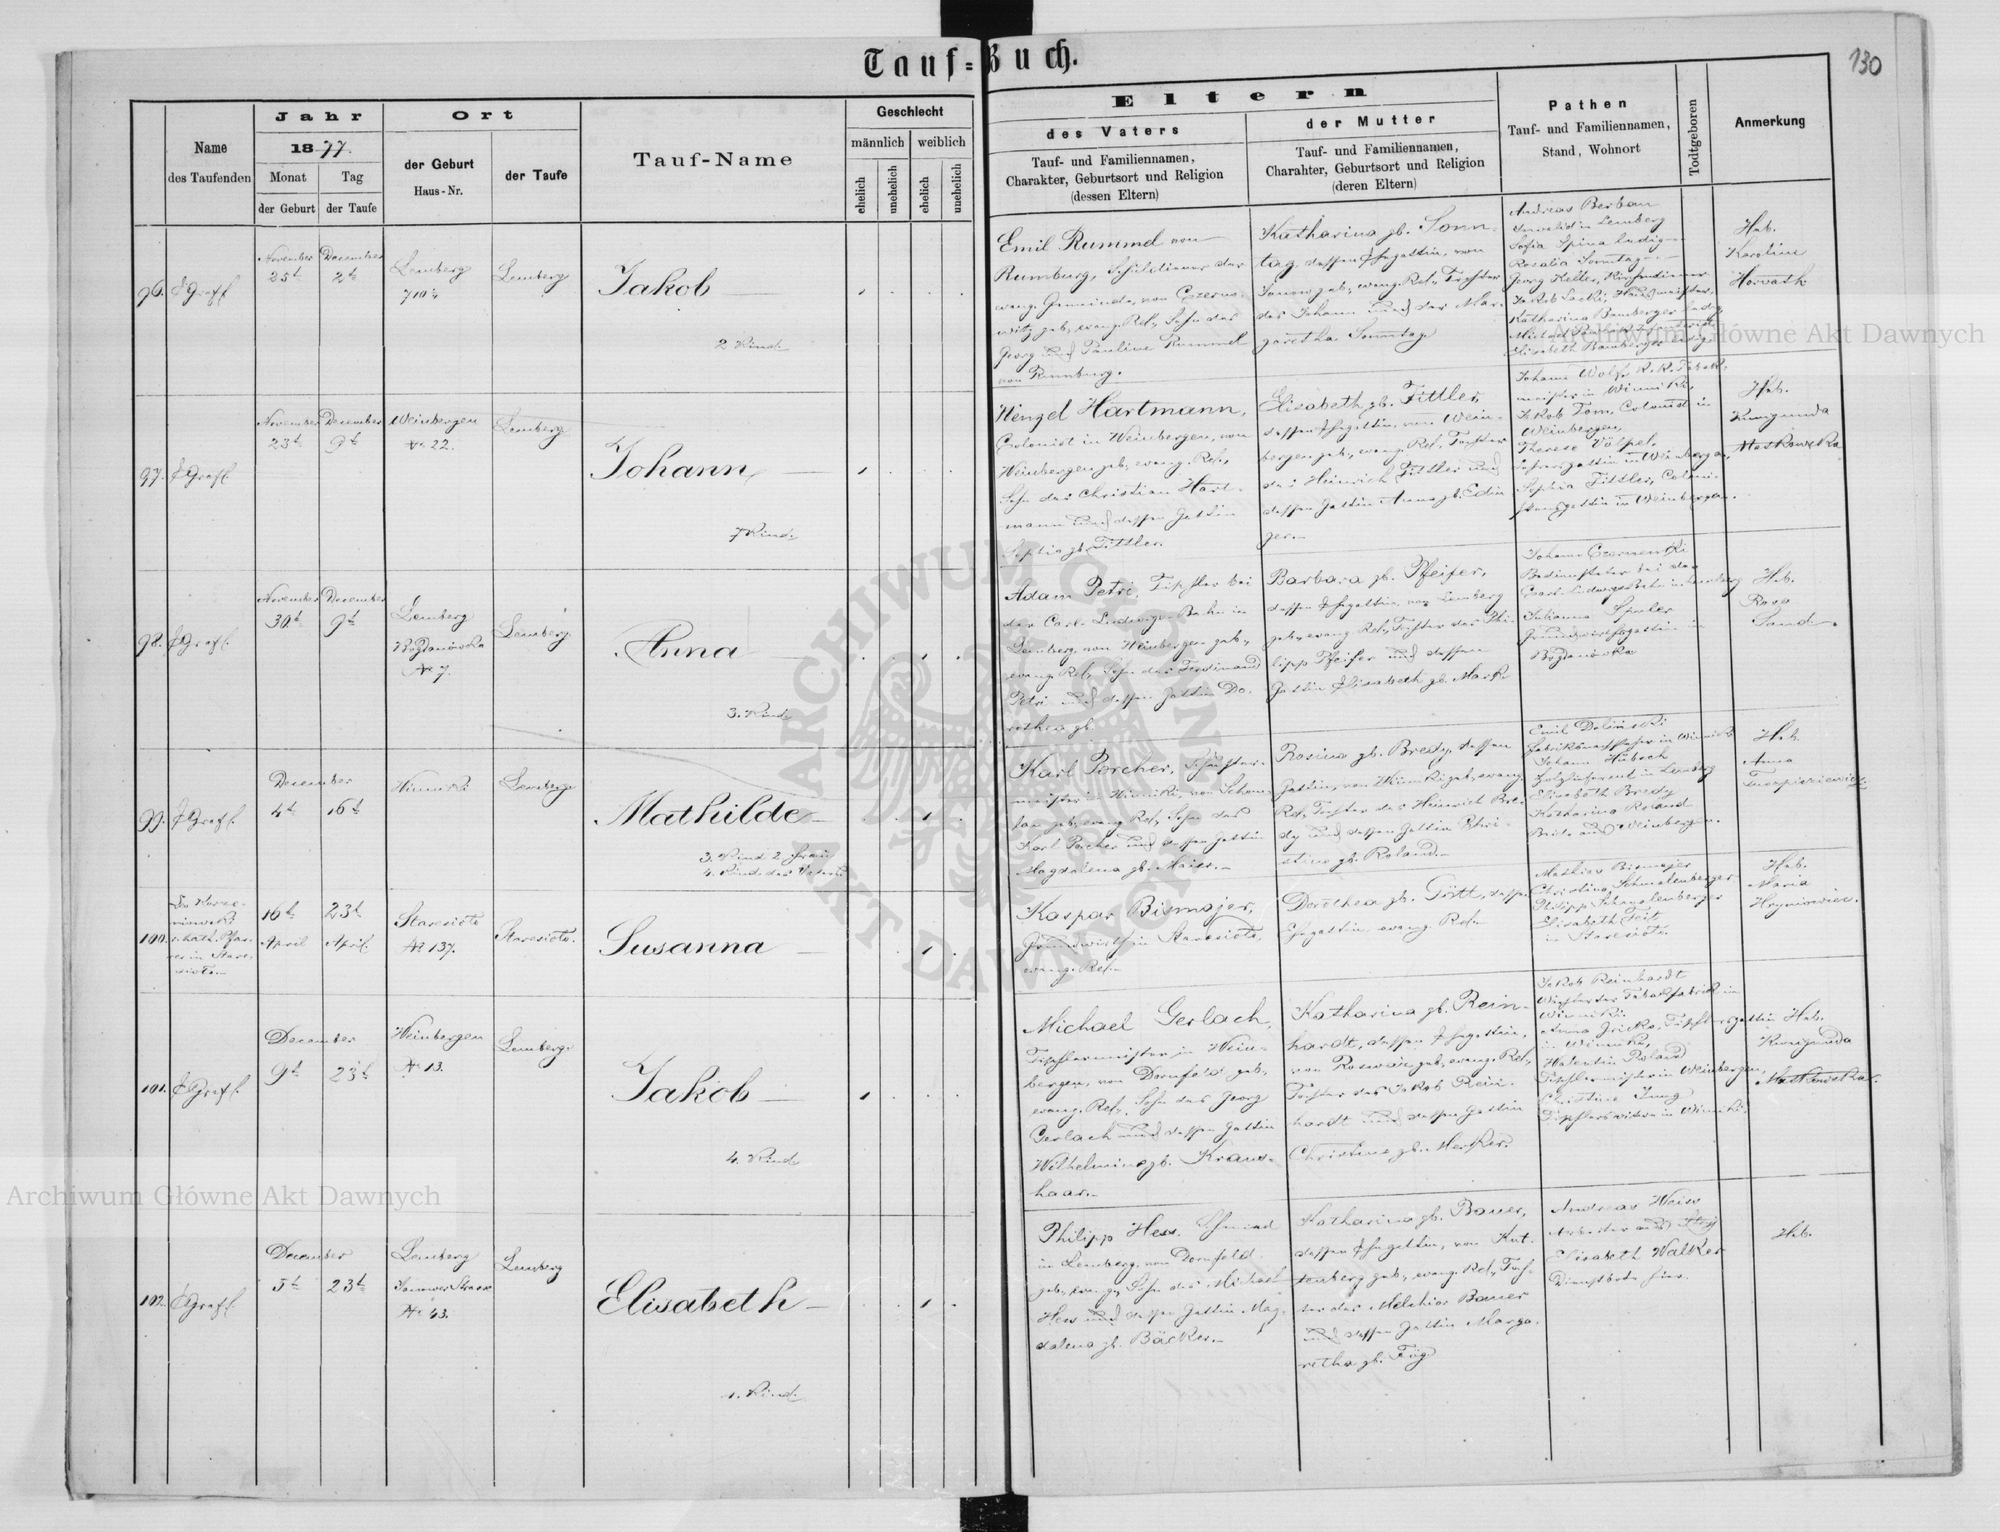 Tauf-Buch.
130
Name
des Taufenden
Jahr
1877.
Monat
Tag
der Geburt
der Taufe
Ort
der Geburt
Haus-Nr.
der Taufe
Tauf-Name
Geschlecht
männlich
weiblich
ehelich
unehelich
ehelich
unehelich
Eltern
des Vaters
Tauf- und Familiennamen,
Charakter, Geburtsort und Religion
(dessen Eltern)
der Mutter
Tauf- und Familiennamen,
Charahter, Geburtsort und Religion
(deren Eltern)
Pathen
Tauf- und Familiennamen,
Stand, Wohnort
Todtgeboren
Anmerkung
96.
November
25t
December
2t
Lemberg
710
Lemberg
Jakob
2 Kind
Emil Rummel von
Rumburg, Schuldiener der
evang. Gemeinde, von Czerno-
witz geb., evang. Rel., Sohn des
Georg und Pauline Rummel
von Rumburg.
Katharina gb. Sonn-
tag, dessen Ehegattin, von
geb., evang. Rel., Tochter
des Johann und der Mar-
garetha Sonntag
Andreas Berban
Invalid in Lemberg
Sofia Spina ledig
Rosalia Sonntag
Georg Keller, Kirchendiener
Jakob Lacki, Hausmeister,
Katharina Bamberger ledig
Elisabeth Bamberger ledig
Heb.
Karoline
Horvath
97.
November
23t
December
9t
Weinbergen
Nr 22.
Lemberg
Johann
7 Kind
Wenzel Hartmann,
Colonist in Weinbergen, von
Weinbergen geb., evang. Rel.,
Sohn des Christian Hart-
mann und dessen Gattin
Sophia gb. Fittler.
Elisabeth gb. Fittler,
dessen Ehegattin, von Wein-
bergen geb., evang. Rel., Tochter
des Heinrich Fittler und
dessen Gattin Anna gb. Edin
ger.
Johann Wolf, K. K. Tabak
meister in Winniki,
Jakob Tom, Colonist in
Weinbergen,
Therese Völpel,
Lehrersgattin in Weinbergen,
Sophia Fittler, Coloni-
stensgattin in Weinbergen.
Heb.
Kunigunda
Maskowska
98.
November
30t
December
9t
Lemberg
Bogdanówka
Nr 7.
Lemberg
Anna
3. Kind
Adam Petri, Tischler bei
der Carl-Ludwigs-Bahn in
Lemberg, von Weinbergen geb.,
evang. Rel., Sohn des Ferdinand
Petri und dessen Gattin Do-
rothea gb.
Barbara gb. Pfeifer,
dessen Ehegattin, von Lemberg
geb., evang. Rel., Tochter des Phi-
lipp Pfeifer und dessen
Gattin Elisabeth gb. Mark
Johann Czernenski
Bediensteter bei der
Carl-Ludwigs-Bahn in Lemberg
Julianna
Grundwirthsgattin in
Bogdanówka
Heb.
Rosa
Sand.
99.
December
4t
16t
Winniki
Lemberg
Mathilde
3. Kind 2. Frau
4. Kind des Vaters
Karl Porcher, Schuster-
meister in Winniki, von Schön-
geb., evang. Rel., Sohn des
Karl Porcher und dessen Gattin
Magdalena gb. Maier.
Rosina gb. Bredy, dessen
Gattin, von Winniki geb., evang.
Rel., Tochter des Heinrich Bre-
dy und dessen Gattin Chri-
stine gb. Roland.
Emil Dolinski
in Winniki
Johann Hübsch
in Lemberg
Elisabeth Bredy
Katharina Roland
Beide aus Weinbergen.
Heb.
Anna
100.
rk. kath. Pfar-
rer in Stare-
siolo
16t
April
23t
April
Staresiolo
Nr 137.
Staresiolo.
Susanna
Kaspar Bismajer,
Grundwirth in Staresiolo,
evang. Rel.
Dorothea gb. Gött, dessen
Ehegattin, evang. Rel.
Mathias Bismajer
Christina Schmalenberger
Philipp Schmalenberger
Elisabeth
in Staresiolo.
Heb.
Maria
Hryniewicz.
101.
December
9t
23t
Weinbergen
Nr 13.
Lemberg
Jakob
4. Kind
Michael Gerlach,
Tischlermeister in Wein-
bergen, von Dornfeld geb.,
evang. Rel., Sohn des Georg
Gerlach und dessen Gattin
Wilhelmine gb. Kraus-
haar.
Katharina gb. Rein-
hardt, dessen Ehegattin,
von Rosenau geb., evang. Rel.,
Tochter des Jakob Rein-
hardt und dessen Gattin
Christine gb. Merker.
Jakob Reinhardt
Wächter der Tabakfabrik in
Winniki
Anna Gricko, Tischlersgattin
in Winniki,
Valentin Roland
Tischlermeister in Weinbergen,
Christine Jung
Tischlerswitwe in Winniki.
Heb.
Kunigunda
Maskowska.
102.
December
5t
23t
Lemberg
Janower Strasse
Nr 43.
Lemberg
Elisabeth
1. Kind
Philipp Hess, Schmied
in Lemberg, von Dornfeld
geb., evang., Sohn des Michael
Hess und dessen Gattin Mag-
dalena gb. Bäcker.
Katharina gb. Bauer,
dessen Ehegattin, von Kut-
tenberg geb., evang. Rel., Toch-
ter des Melchior Bauer
und dessen Gattin Marga-
retha gb. Fög
Andreas Weiss
Arbeiter aus
Elisabeth Walker
Dienstbote hier.
Heb.
Archiwum Główne Akt Dawnych
Archiwum Główne Akt Dawnych
ARCHIWUM GŁÓWNE AKT DAWNYCH